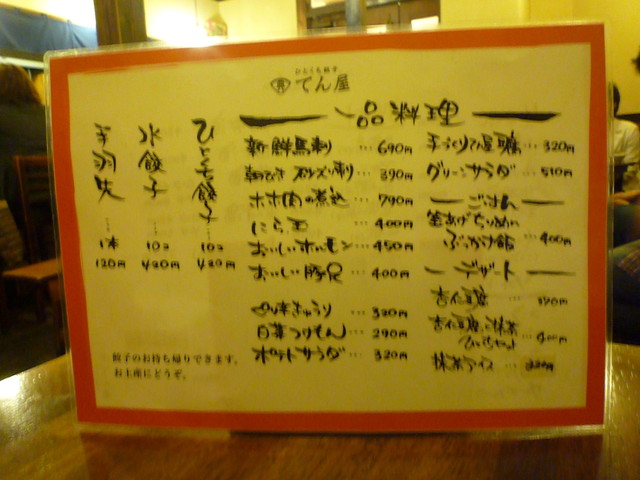 ひとくち餃子
てん屋
一品料理
ひとくち餃子 … 10コ 420円
水餃子 … 10コ 420円
手羽先 … 1本 120円
新鮮馬刺 … 690円
砂ズリ刺 … 390円
ホホ肉の煮込 … 790円
にら玉 … 400円
おいしいホルモン … 450円
おいしい豚足 … 400円
一本きゅうり … 320円
白菜つけもん … 290円
ポテトサラダ … 320円
手づくり 320円
グリーンサラダ … 510円
ごはん
釜あげちりめん
ぶっかけ飯 … 400円
デザート
杏仁豆腐 …
杏仁豆腐と抹茶
400円
抹茶アイス … 320円
餃子のお持ち帰りできます。
お土産にどうぞ。